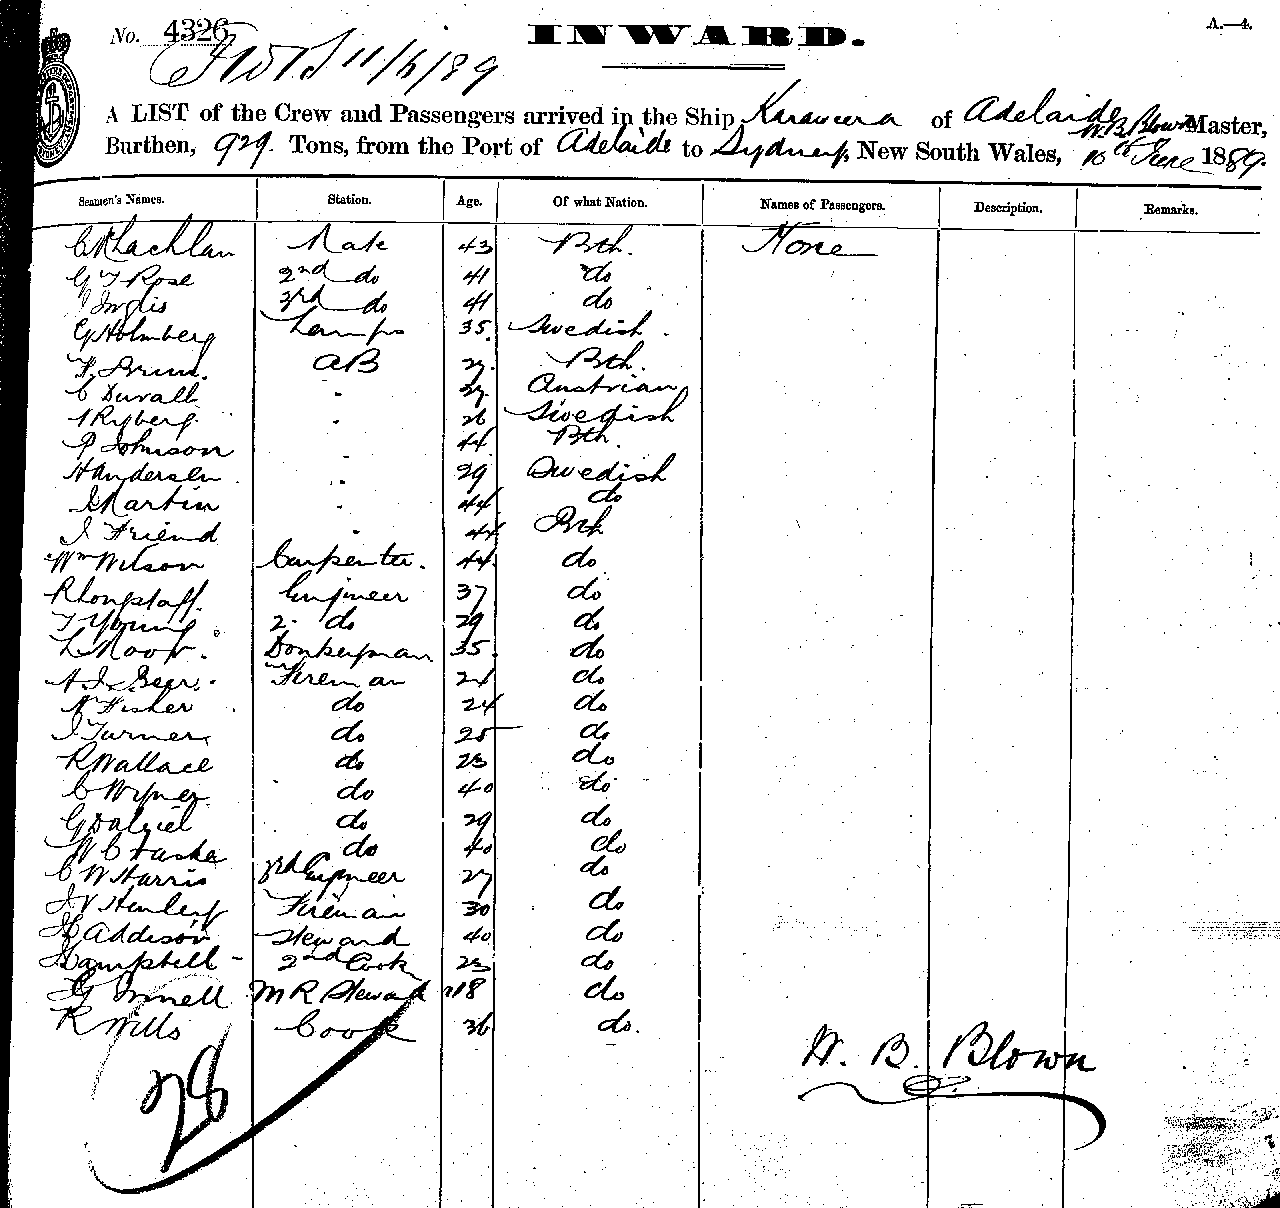 No. 4326
INWARD.
A.—4.
11/6/89
A LIST of the Crew and Passengers arrived in the Ship Karaweera of Adelaide W. B. Blown Master,
Burthen, 929. Tons, from the Port of Adelaide to Sydney, New South Wales, 10th June 1889.
Seamen's Names. Station. Age. Of what Nation. Names of Passengers. Description. Remarks.
C McLachlan Mate 43 Bth. None
G T Rose 2nd do 41 do
J Inglis 3rd do 41 do
G Holmberg Lamps 35. Swedish.
AB Bth.
C Duvall " Austrian
Ryberg " 26 Swedish
P Johnson " 44 Bth.
H Andersen " 29 Swedish
J Martin " 44 do
J Friend " 44 Bth
Wm Wilson Carpenter. 44 do
R Longstaff. Engineer 37 do
T Young 2 do 29 do
Donkeyman 35. do
Fireman 21 do
W Fisher do 24 do
J Turner do 25 do
R Wallace do 23 do
C Wymer do 40 do
G Dalziel do 29 do
do 40 do
C W Harris 3rd Engineer 27 do
J V Henley Fireman 30 do
H Addison Steward 40 do
Campbell - 2nd Cook 23 do
M R Steward 18 do
R Wills Cook 36 do.
28
W. B. Blown